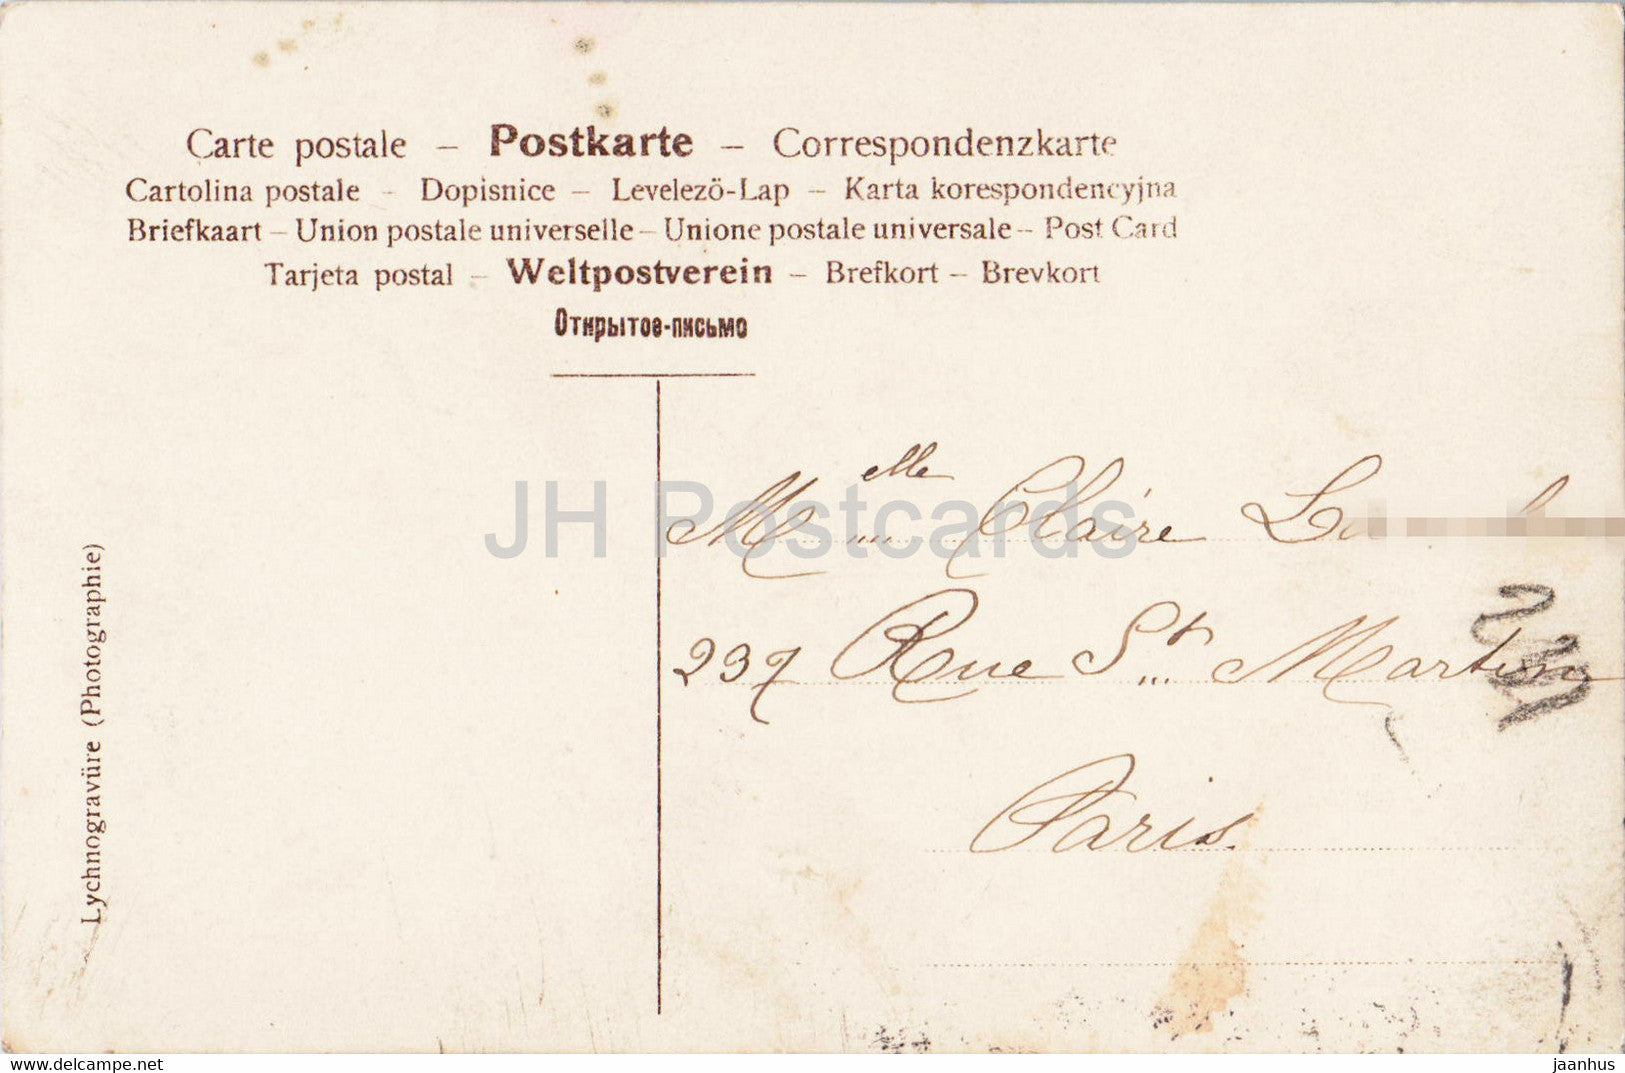 Carte postale – Postkarte – Correspondenzkarte
Cartolina postale – Dopisnice – Levelezö-Lap – Karta korespondencyjna
Briefkaart – Union postale universelle – Unione postale universale – Post Card
Tarjeta postal – Weltpostverein – Brefkort – Brevkort
Открытое-письмо
JH Postcards
Melle Claire
237 Rue St Martin
Paris.
Lychnogravüre (Photographie)
delcampe.net
jaanhus